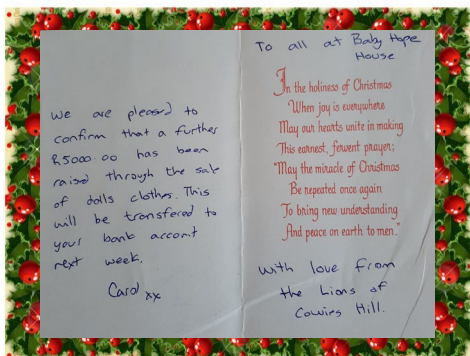 We are pleased to
confirm that a further
R5000.00 has been
raised through the sale
of dolls clothes. This
will be transfered to
your bank account
next week.
Carol xx
To all at Baby Hope
House
In the holiness of Christmas
When joy is everywhere
May our hearts unite in making
This earnest, fervent prayer;
"May the miracle of Christmas
Be repeated once again
To bring new understanding
And peace on earth to men."
With love from
the Lions of
Cowies Hill.